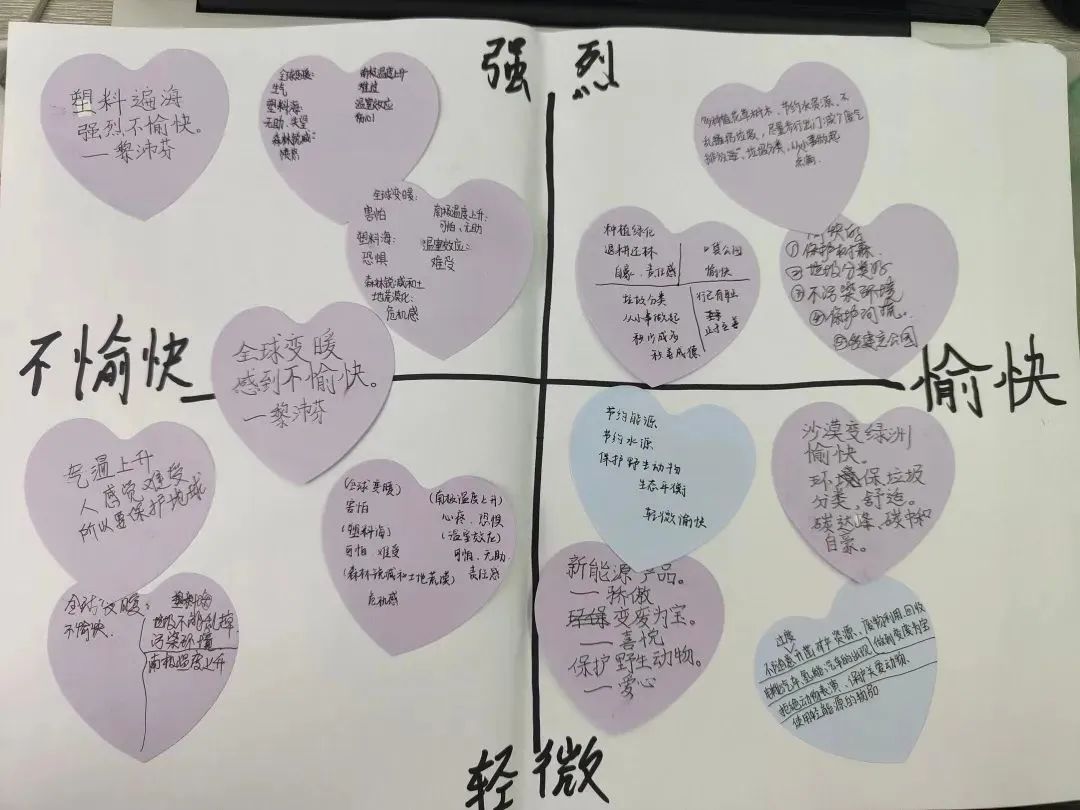 强烈
不愉快
愉快
轻微
塑料遍海
强烈不愉快。
一黎沛芬
全球变暖:
生气
塑料海:
无助、失望
森林锐减:
愤怒
南极温度上升
难过
温室效应
全球变暖:
害怕
塑料海:
恐惧
森林锐减和土
地荒漠化:
危机感
南极温度上升:
可怕、无助
温室效应:
难受
全球变暖
感到不愉快。
一黎沛芬
气温上升
人感觉难受
所以要保护地球
全球变暖:
不愉快.
塑料海
垃圾不能乱掉
污染环境
南极温度上升
(全球变暖)
害怕
(塑料海)
可怕 难受
(森林锐减和土地荒漠)
危机感
(南极温度上升)
心疼、恐惧
(温室效应)
可怕、无助
责任感
多种植花草树木、节约水资源、不
乱扔垃圾、尽量步行出门减少废气
排放、垃圾分类、从小事做起
种植绿化
退耕还林
自豪、责任感
公园
愉快
垃圾分类
从小事做起
积小成为
积善成德
行己有耻
止于至善
①保护森林
②垃圾分类好
③不污染环境
④保护河流.
⑤多建立公园
节约能源
节约水源
保护野生动物
生态平衡
轻微愉快
沙漠变绿洲
愉快。
环境保垃圾
分类,舒适。
碳达峰、碳中和
自豪。
新能源产品。
一骄傲
变废为宝。
一喜悦
保护野生动物。
一爱心
过度
不随意开凿矿产资源、废物利用回收
做到变废为宝
电能汽车、氢能汽车的出现
拒绝动物表演、保护关爱动物、
使用轻能源的物品